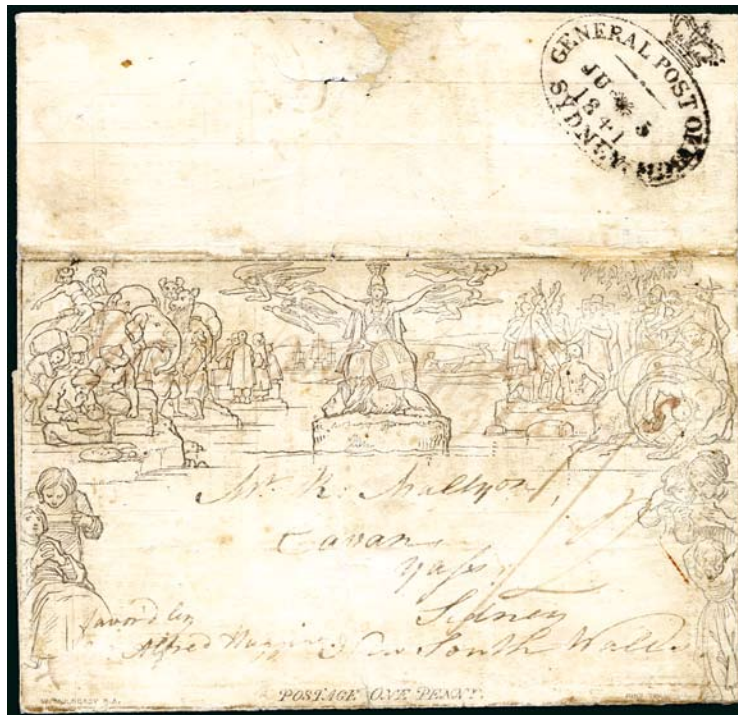 GENERAL POST OFFICE
JU 5
1841
SYDNEY
Mr. R. Mallyon,
Cavan
Yass
Sidney
New South Wales.
Favor'd by
Alfred
POSTAGE ONE PENNY.
W. MULREADY R.A.